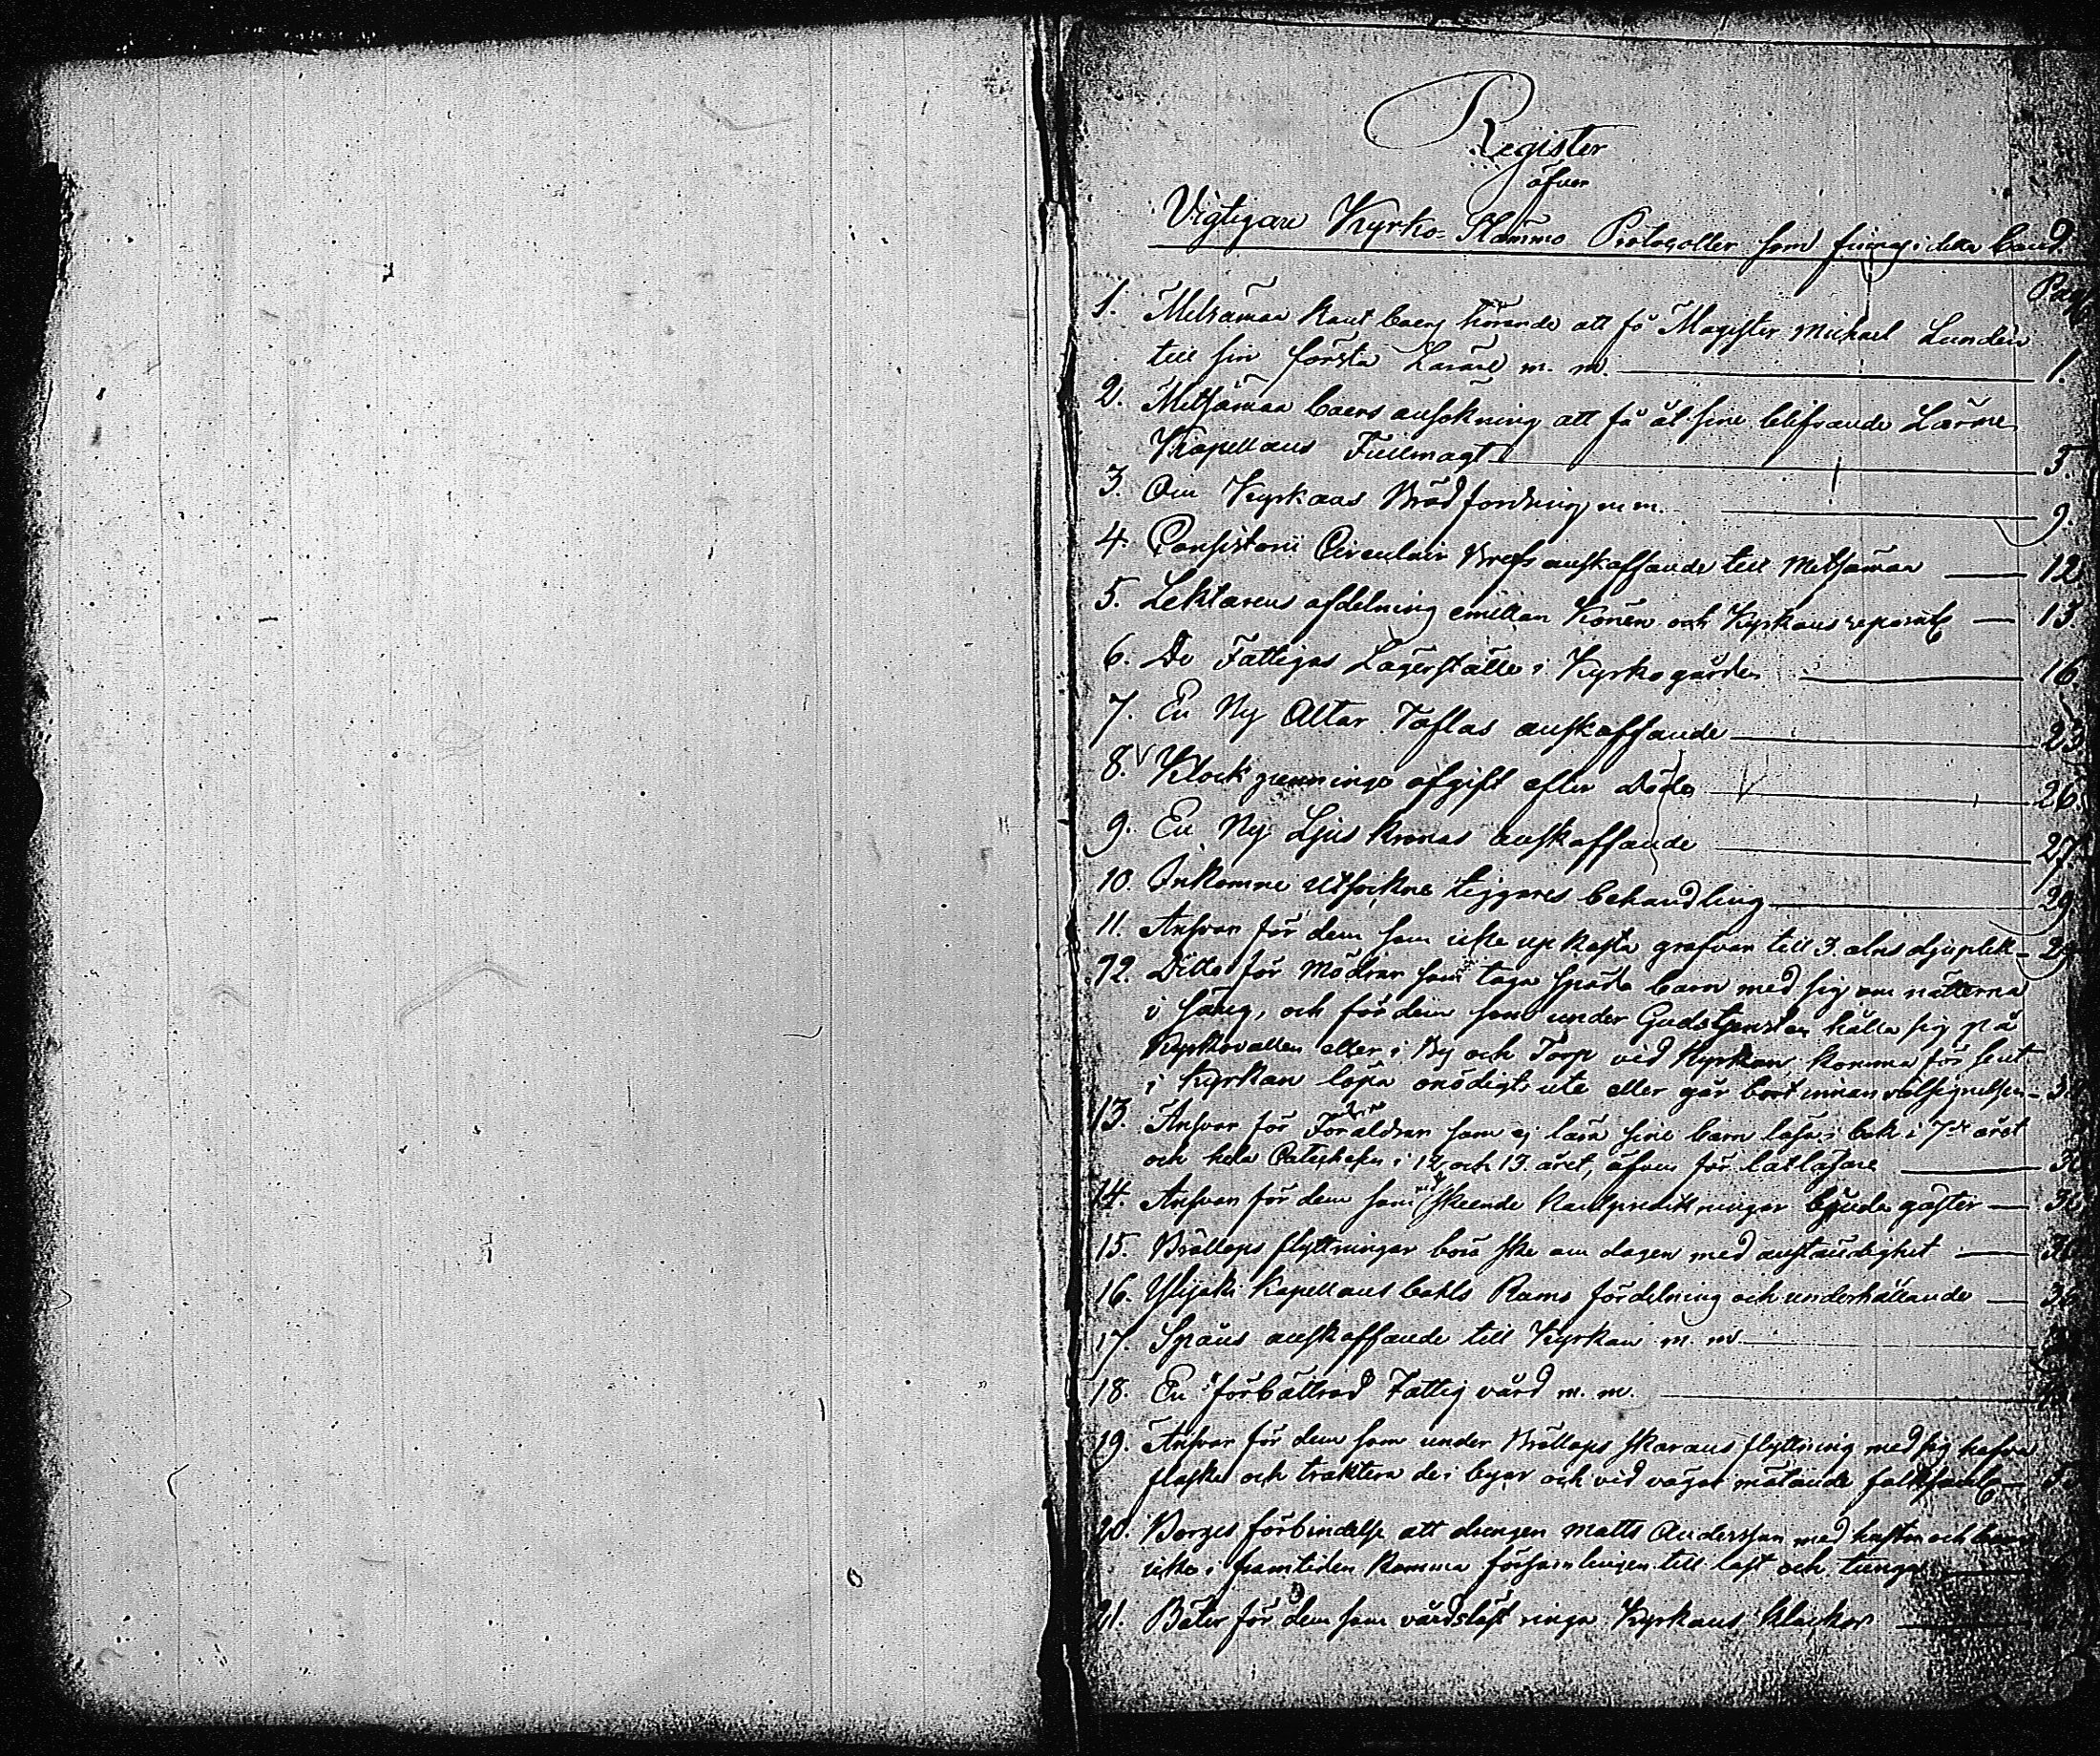 Register
öfver
Vigtigare Kyrko-Stämmo Protocoller som finnas i detta band.
Pag.
1. Metsämaa hörande att få Magister Michael Lunden
till sin första Lärare m. m. 1.
2. Metsämaa boers ansökning att få åt sine blifvande Lärare
Kapellans Fullmagt 5.
3. Om Kyrkans m. m. 9.
4. Consistorii Circulair Brefs anskaffande till Metsämaa 12
5. Lektarens afdelning emellan Könen och Kyrkans reparat 13.
6. De Fattigas Lägerställe i Kyrkogården 16
7. En Ny Altar Taflas anskaffande 23
8. Klock ringnings afgift efter döda 26
9. En Ny Ljus Kronas anskaffande 27
10. Inkomne utsockne tiggares behandling 29
11. Ansvar för dem som icke upkasta grafvar till 3 alns djuplek 29
12. Ditto för Mödrar som taga späda barn med sig om nätterna
i säng, och för dem som under Gudstjensten hålla sig på
Kyrkovallen eller i By och Torp vid Kyrkan, komma för sent
i Kyrkan löpa onödigt ute eller går bort innan välsignelsen
13. Ansvar för Föräldrar som ej lära sine barn läsa i bok i 7de året
och hela Catechesen i 12 och 13. året, äfven för latläsare
14. Ansvar för dem som vid skeende bjuda gäster
15. Bröllops flyttningar böra ske om dagen med anständighet
16. Ylijoki Kapellans bohls Rums fördelning och underhållande 36
17. Spåns anskaffande till Kyrkan m. m.
18. En förbättrad Fattig vård m. m.
19. Ansvar för dem som under Bröllops skarans flyttning med sig hafva
flaska och traktera de i byar och vid vägar mötande
20. Borgis förbindelse att drengen Matts Andersson med hustru och barn
icke i framtiden komma församlingen till last och tunga
21. Böter för dem som vårdslöst ringa Kyrkans klockor